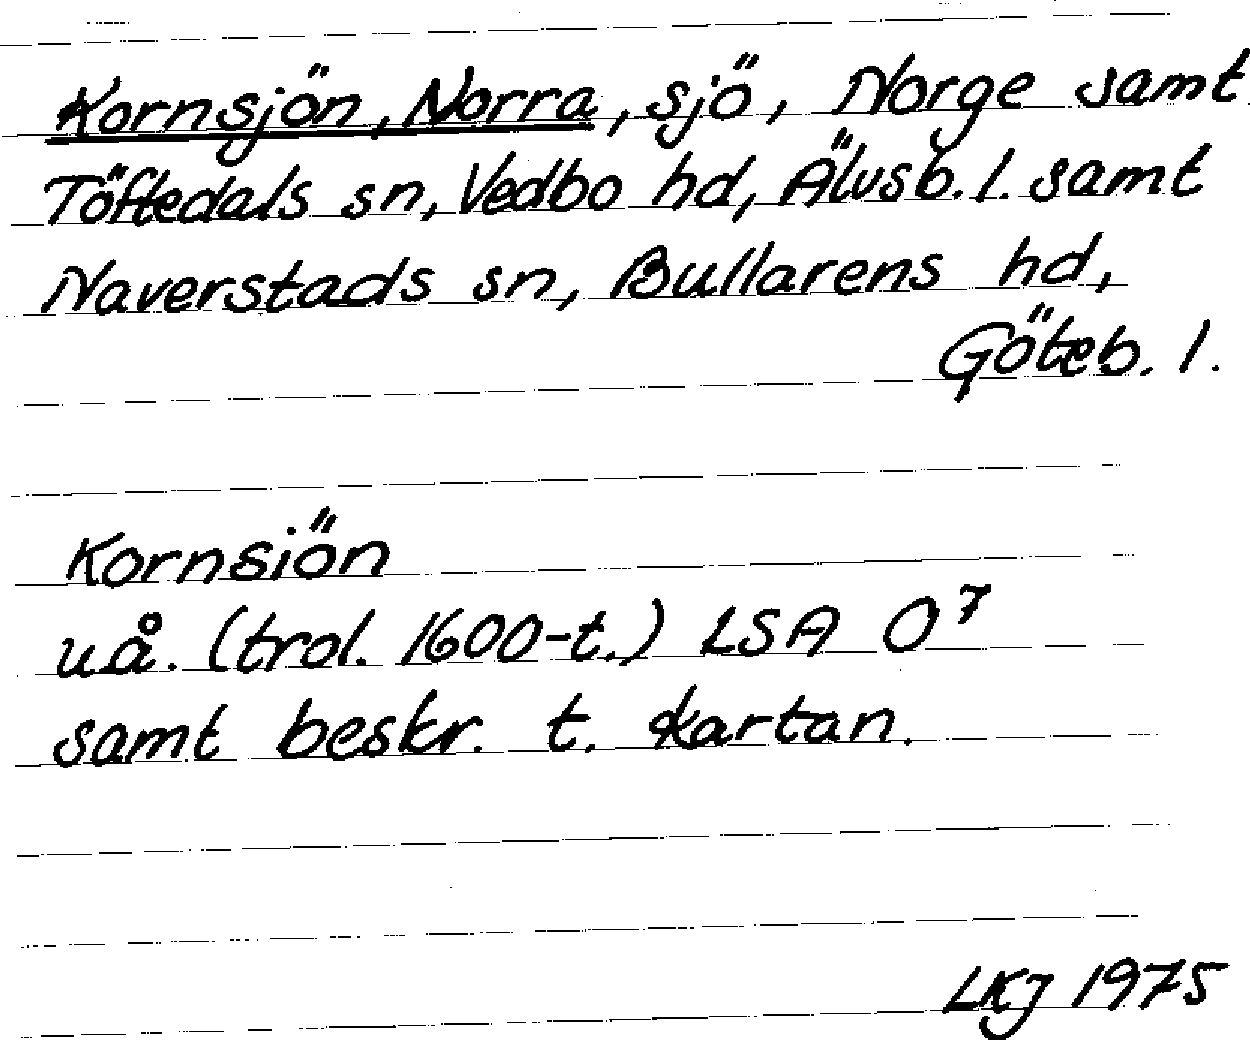 Kornsjön, Norra, sjö, Norge samt
Töftedals sn, Vedbo hd, Älvsb. l. samt
Naverstads sn, Bullarens hd,
Göteb. l.
Kornsiön
uå. (trol. 1600-t.) LSA O⁷
samt beskr. t. kartan.
LKJ 1975